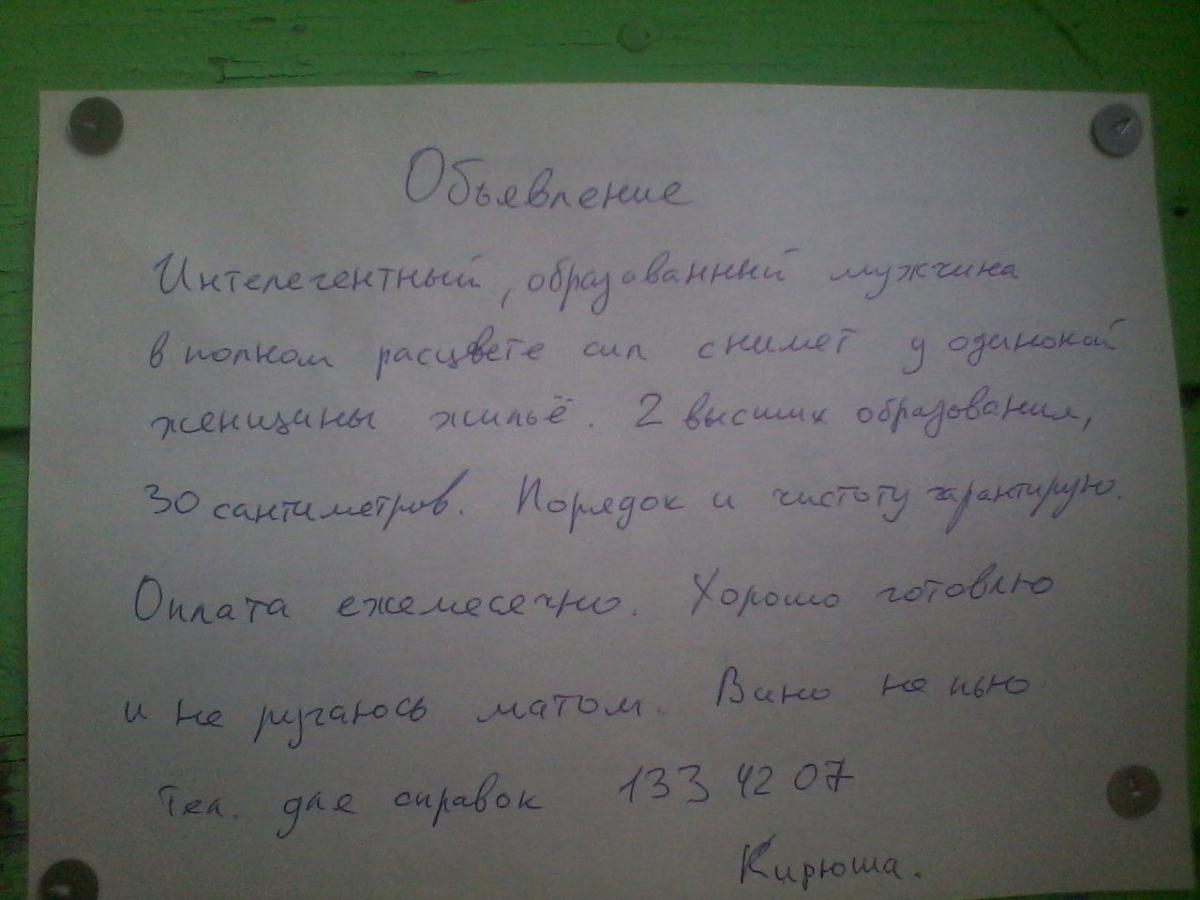 Обьявление
Интелегентный, образованный мужчина
в полном расцвете сил снимет у одинокой
женщины жильё. 2 высших образования,
30 сантиметров. Порядок и чистоту гарантирую.
Оплата ежемесечно. Хорошо готовлю
и не ругаюсь матом. Вино не пью
Тел. для справок 133 42 07
Кирюша.